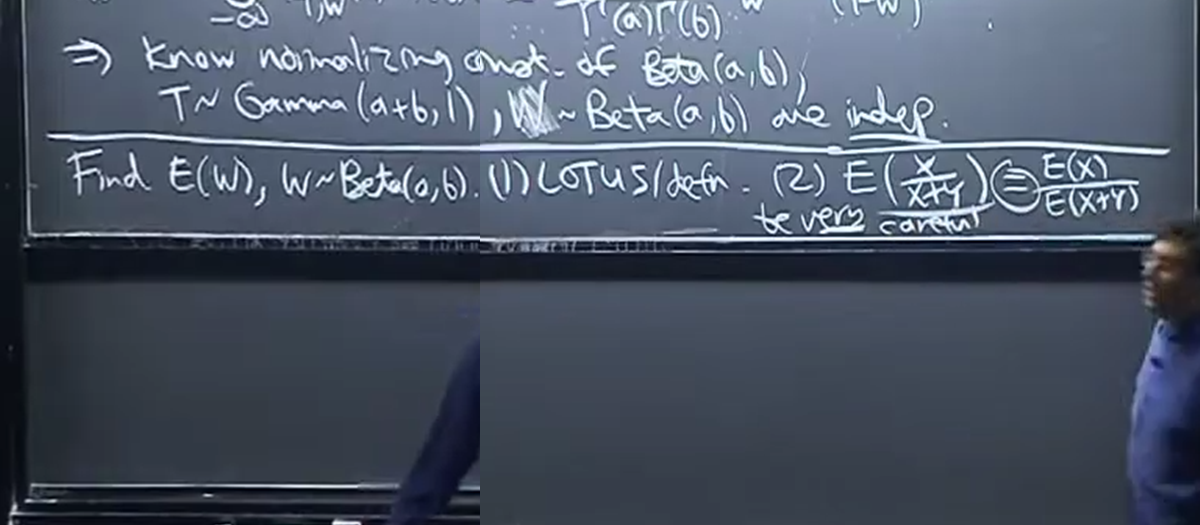 -∞ T,W Γ(a)Γ(b) w (1-w)
⇒ Know normalizing const. of Beta(a,b),
T~ Gamma(a+b,1), W ~ Beta(a,b) are indep.
Find E(W), W~Beta(a,b). (1) LOTUS/defn. (2) E(X/(X+Y)) = E(X)/E(X+Y)
be very careful